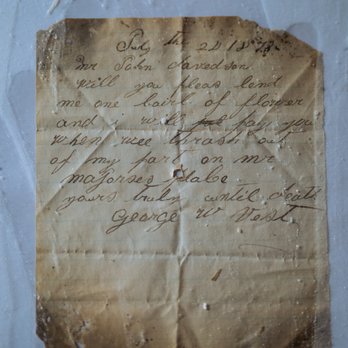 July the 24 18
mr John davedson
will you pleas lend
me one bairl of flower
and i will pay you
when wee thrash out
of my part on mr
majorses place
yours truly until death
George W Vest